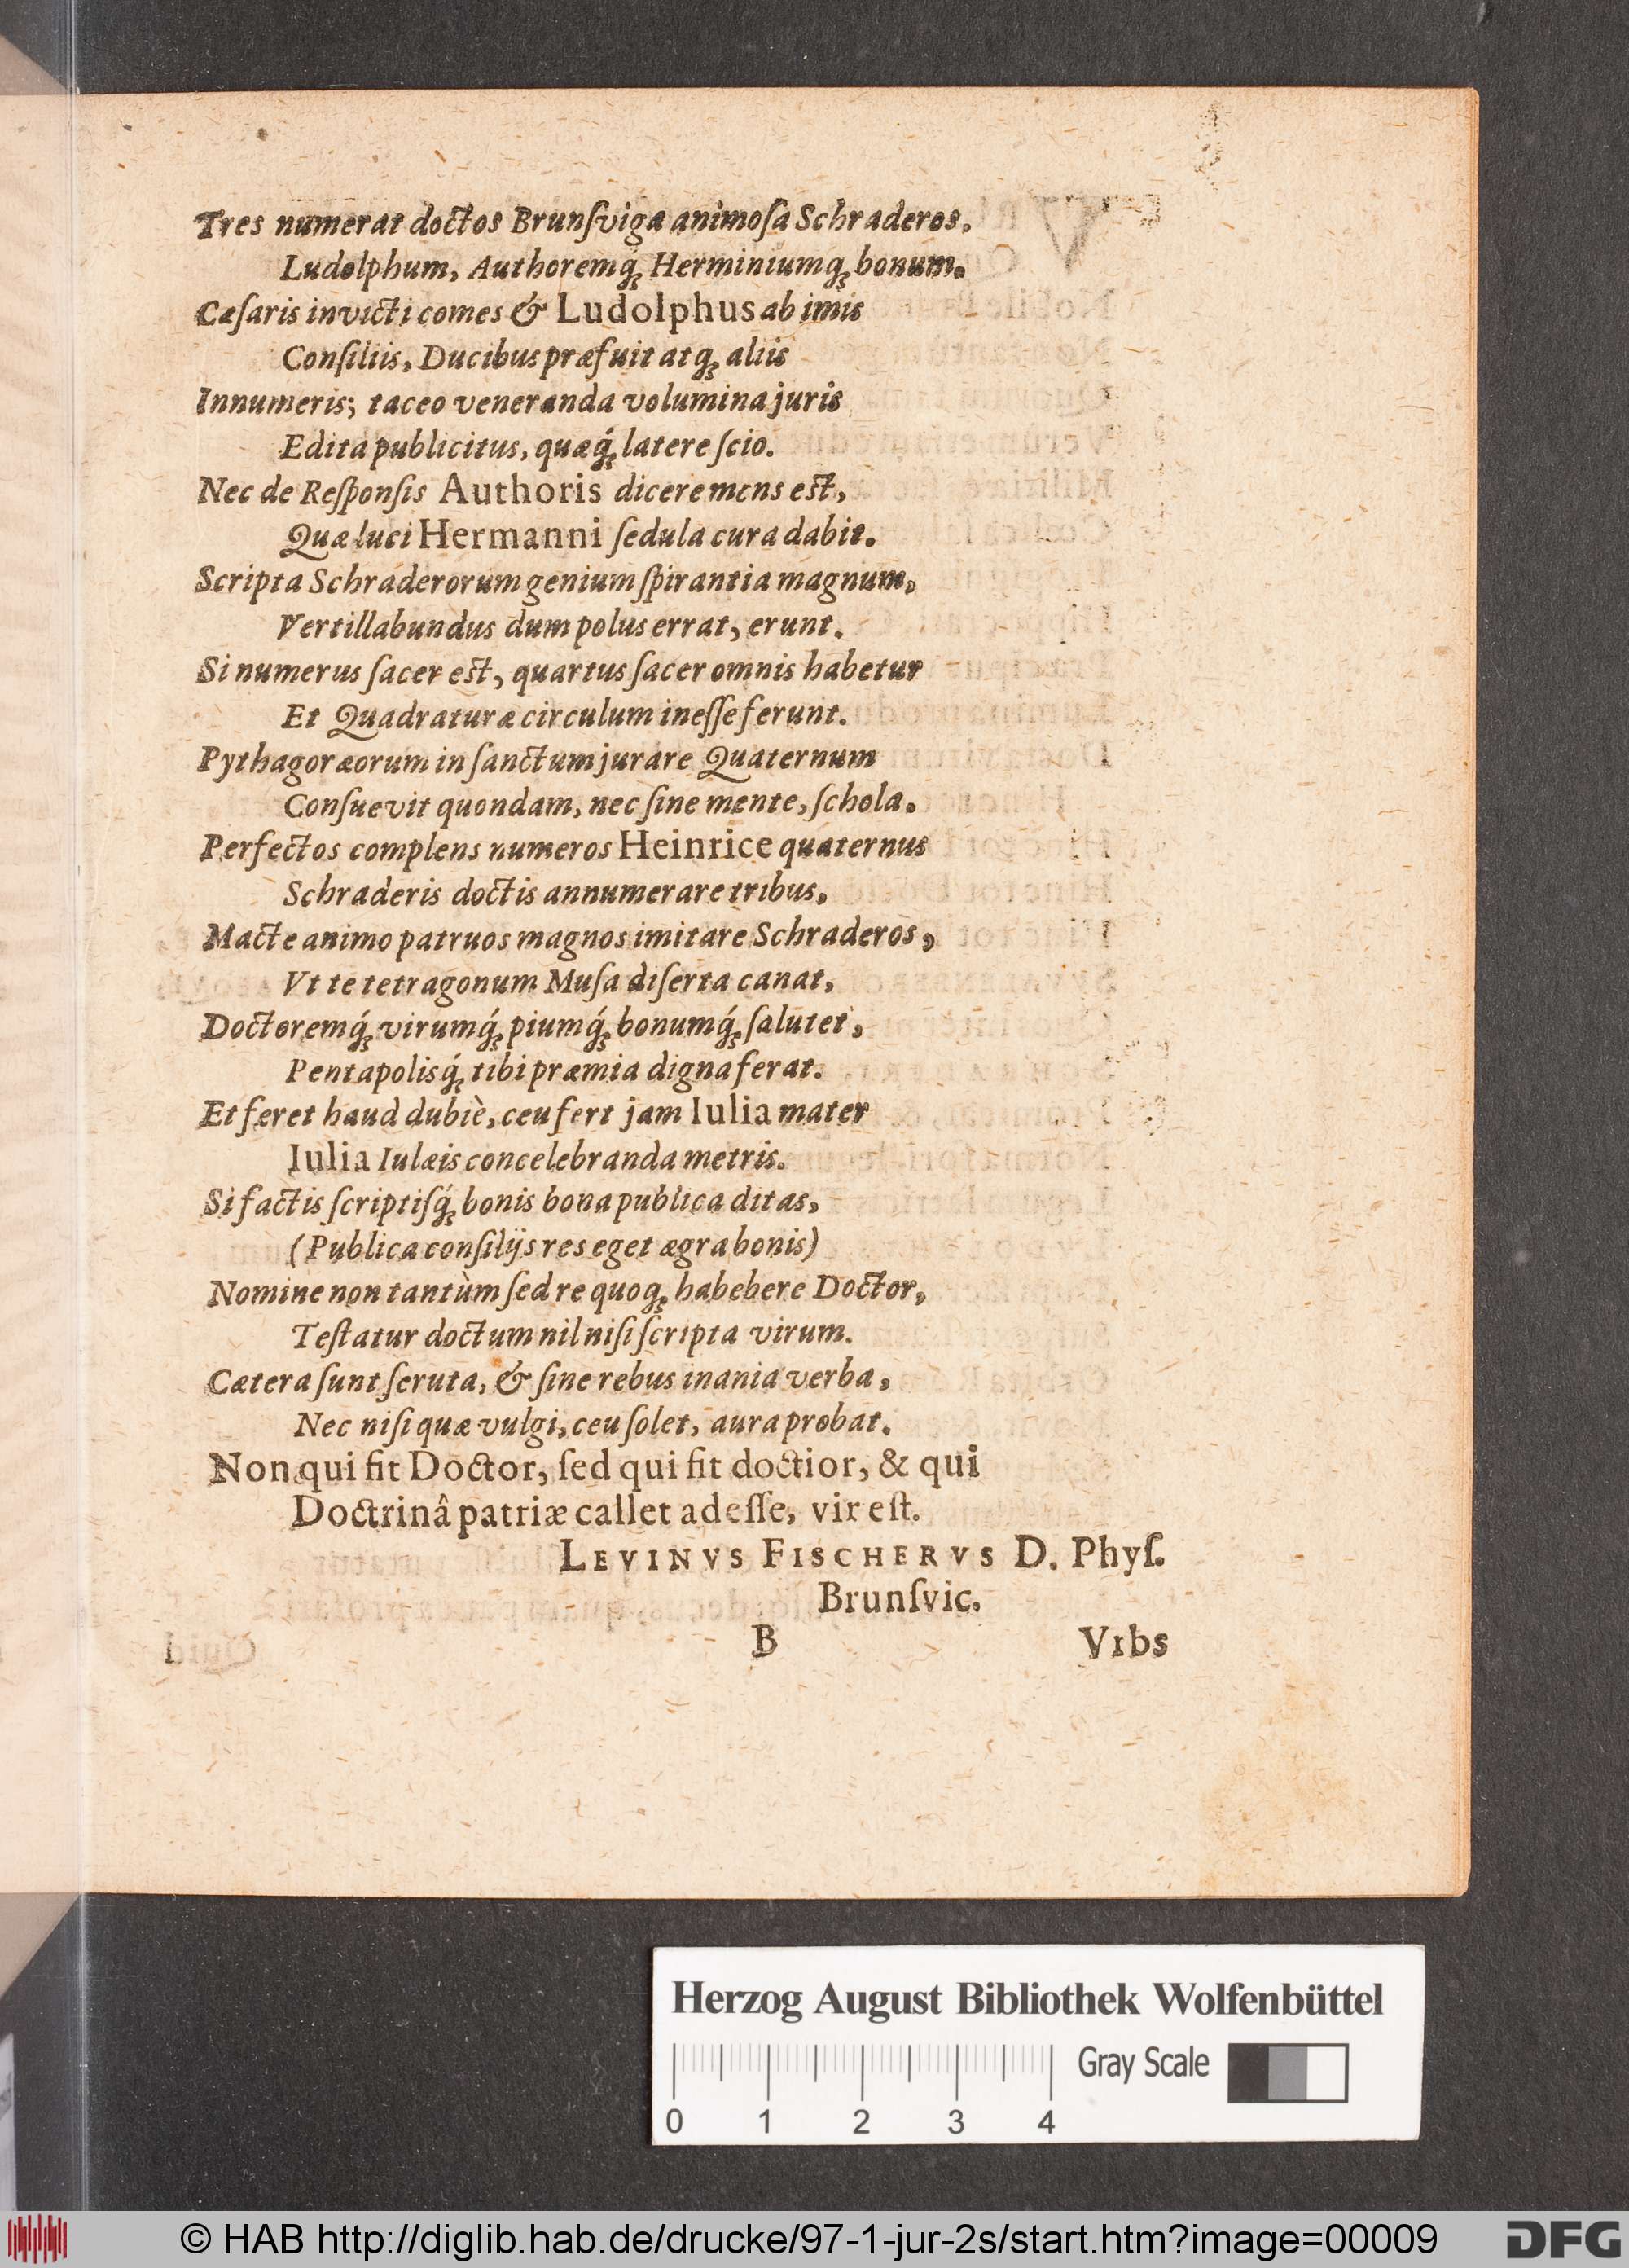 Tres numerat doctos Brunſviga animoſa Schraderos.
Ludolphum, Authoremq́; Herminiumq; bonum.
Cæſaris invicti comes & Ludolphus ab imis
Conſiliis, Ducibus præfuit atq; aliis
Innumeris; taceo veneranda volumina juris
Edita publicitus, quæq́; latere ſcio.
Nec de Reſponſis Authoris dicere mens eſt,
Quæ luci Hermanni ſedula cura dabit.
Scripta Schraderorum genium ſpirantia magnum,
Vertillabundus dum polus errat, erunt.
Si numerus ſacer eſt, quartus ſacer omnis habetur
Et Quadraturæ circulum ineſſe ferunt.
Pythagoræorum in ſanctum jurare Quaternum
Conſuevit quondam, nec ſine mente, ſchola.
Perfectos complens numeros Heinrice quaternus
Schraderis doctis annumerare tribus,
Macte animo patruos magnos imitare Schraderos,
Vt te tetragonum Muſa diſerta canat,
Doctoremq́; virumq́; piumq́; bonumq́; ſalutet,
Pentapolisq́; tibi præmia digna ferat.
Et feret haud dubiè, ceu fert jam Iulia mater
Iulia Iulæis concelebranda metris.
Si factis ſcriptiſq́; bonis bona publica ditas,
(Publica conſilijs res eget ægra bonis)
Nomine non tantùm ſed re quoq; habebere Doctor,
Teſtatur doctum nil niſi ſcripta virum.
Cætera ſunt ſcruta, & ſine rebus inania verba,
Nec niſi quæ vulgi, ceu ſolet, aura probat.
Non qui fit Doctor, ſed qui fit doctior, & qui
Doctrinâ patriæ callet adeſſe, vir eſt.
LEVINVS FISCHERVS D. Phyſ.
Brunſvic.
B Vrbs
Herzog August Bibliothek Wolfenbüttel
Gray Scale
0 1 2 3 4
© HAB http://diglib.hab.de/drucke/97-1-jur-2s/start.htm?image=00009
DFG